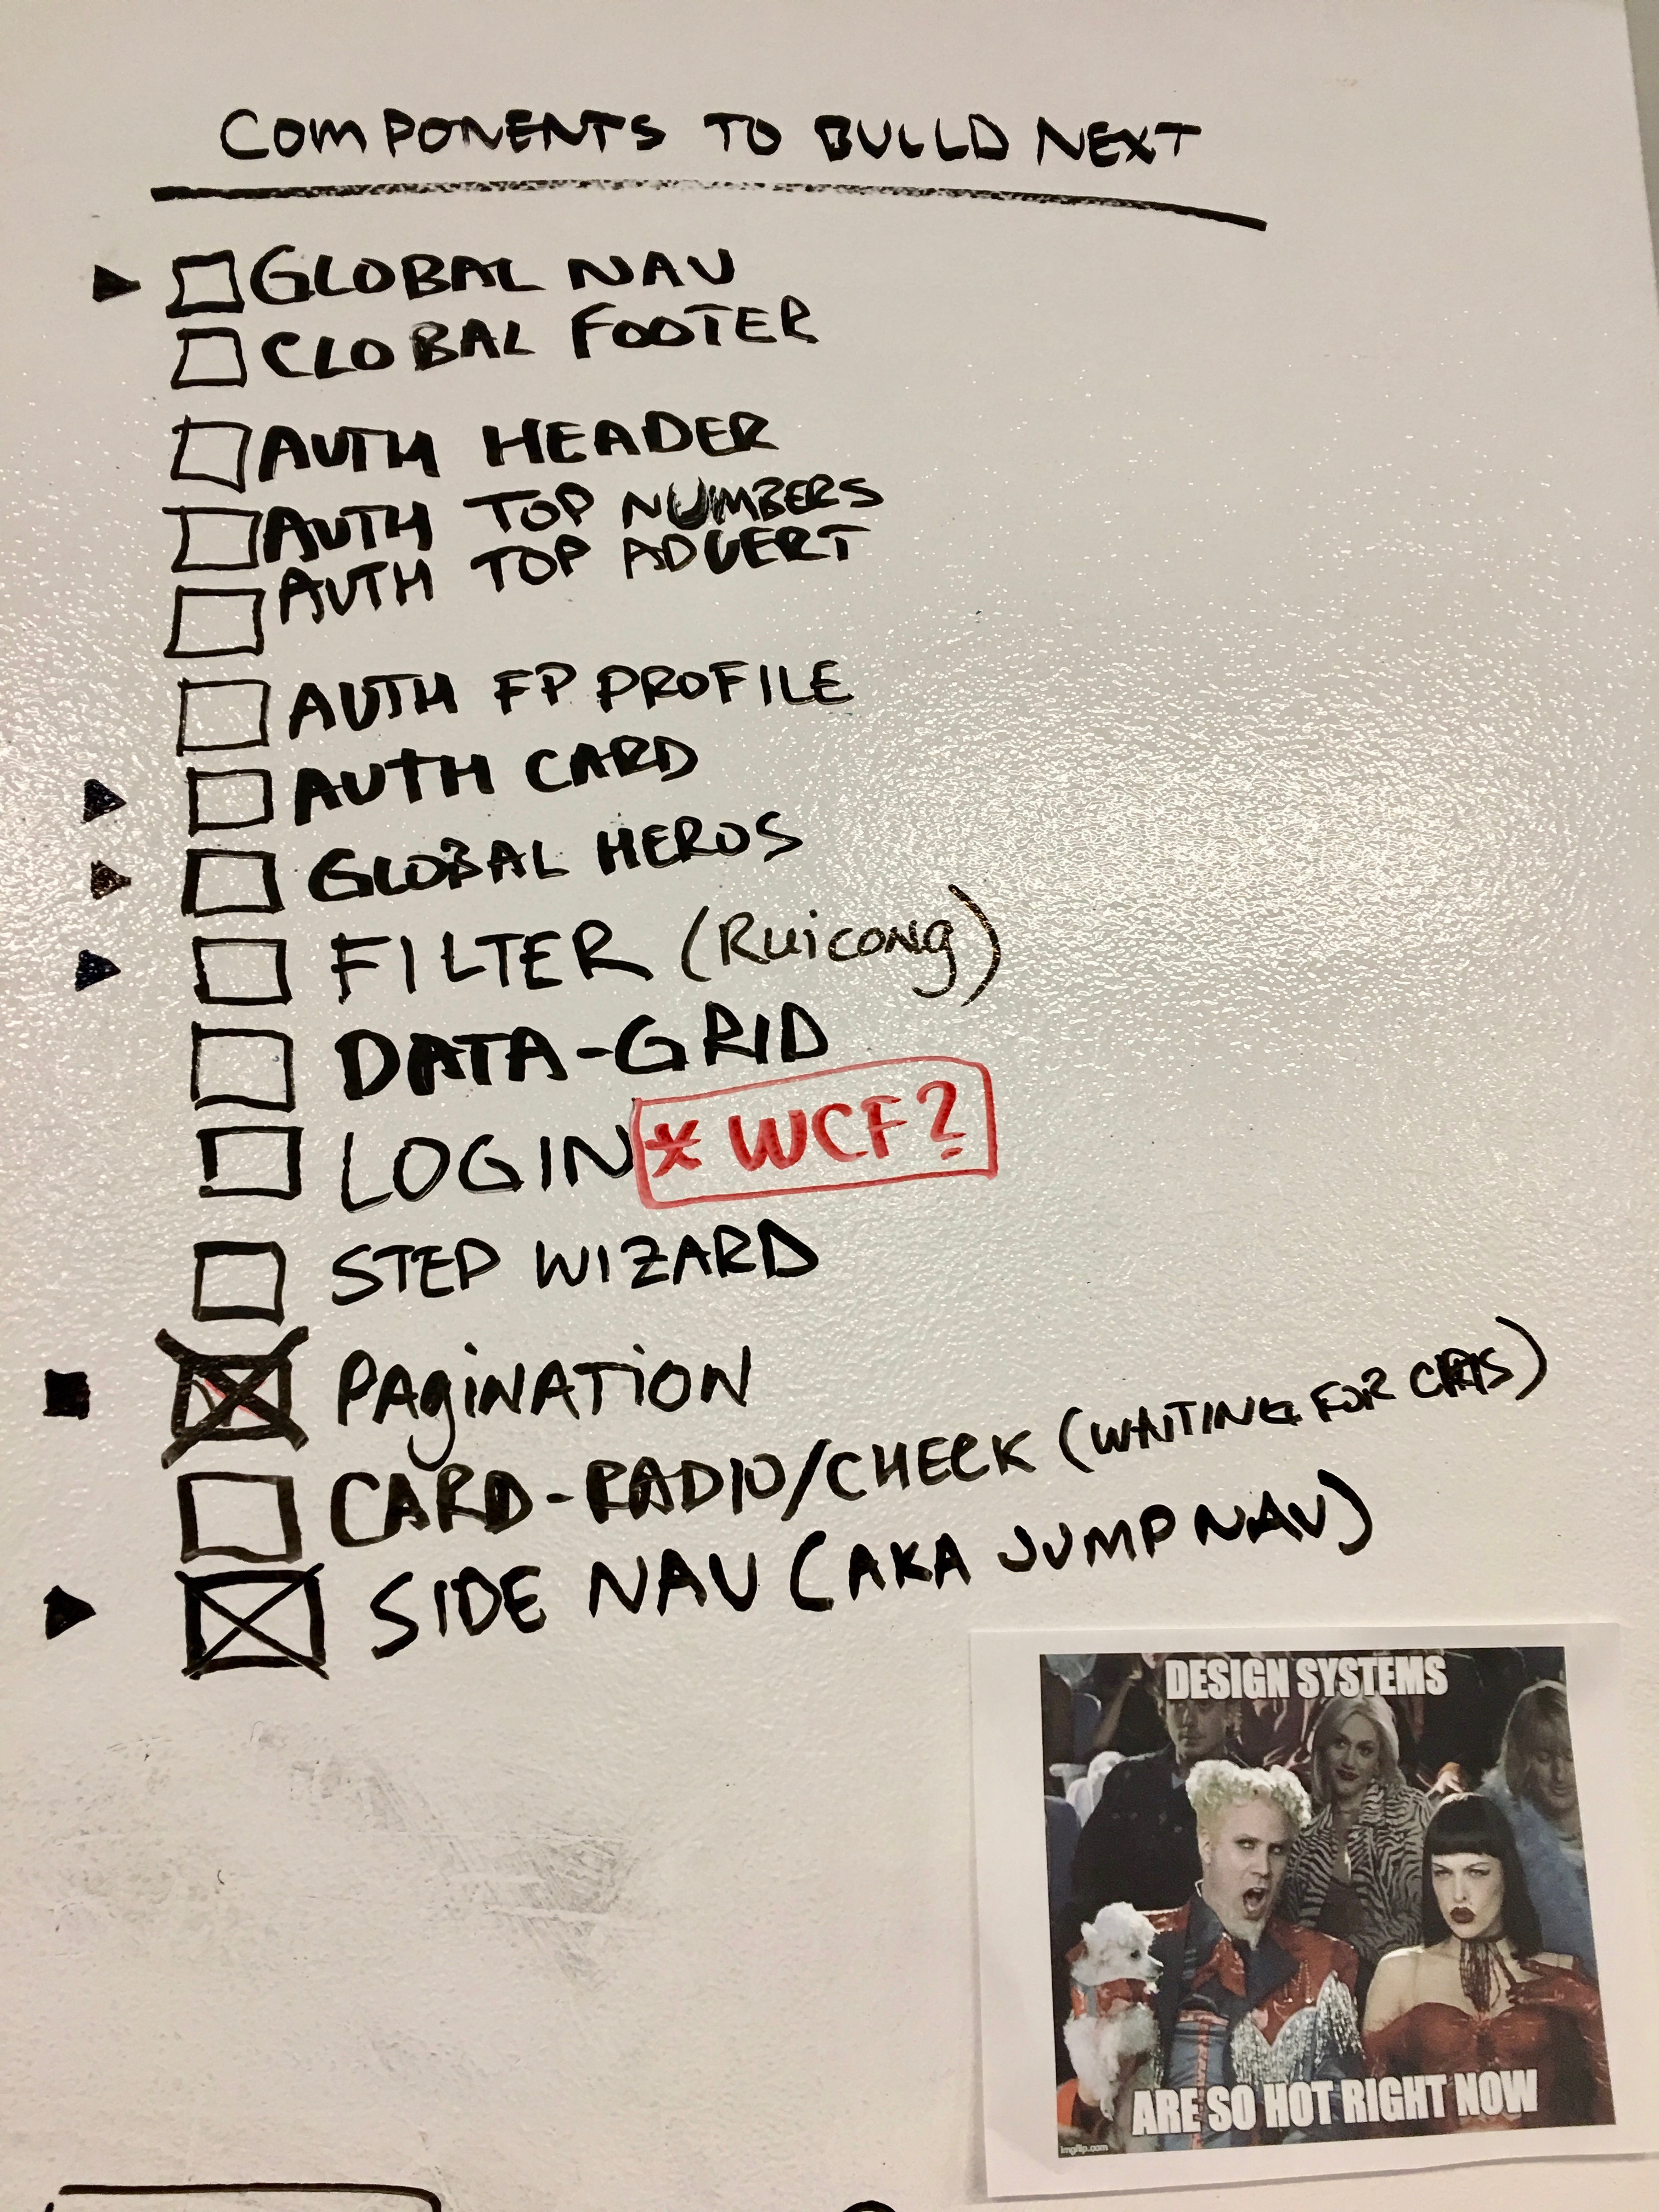 COMPONENTS TO BUILD NEXT
GLOBAL NAV
GLOBAL FOOTER
AUTH HEADER
AUTH TOP NUMBERS
AUTH TOP ADVERT
AUTH FP PROFILE
AUTH CARD
GLOBAL HEROS
FILTER (Ruicong)
DATA-GRID
LOGIN * WCF?
STEP WIZARD
PAgiNATiON
CARD-RADIO/CHECK (WAITING FOR CRIS)
SIDE NAV (AKA JUMP NAV)
DESIGN SYSTEMS
ARE SO HOT RIGHT NOW
imgflip.com